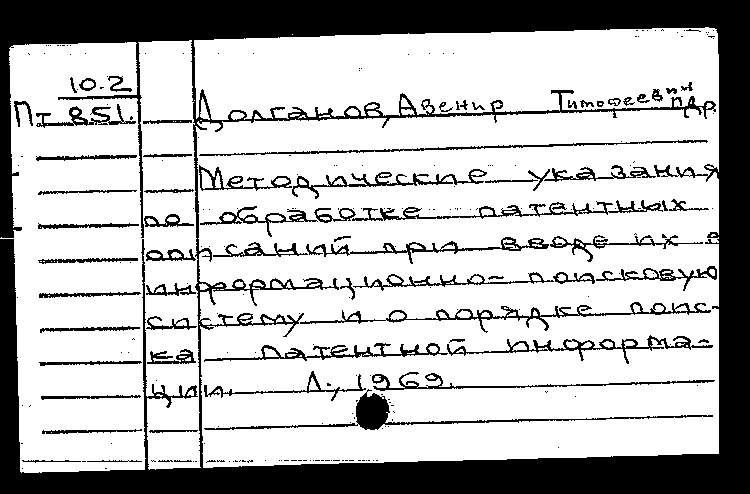 10.2
Пт 851. Долганов, Авенир Тимофеевич
и др.
Методические указания
по обработке патентных
описаний при вводе их в
информационно-поисковую
систему и о порядке поис-
ка патентной информа-
ции. Л., 1969.